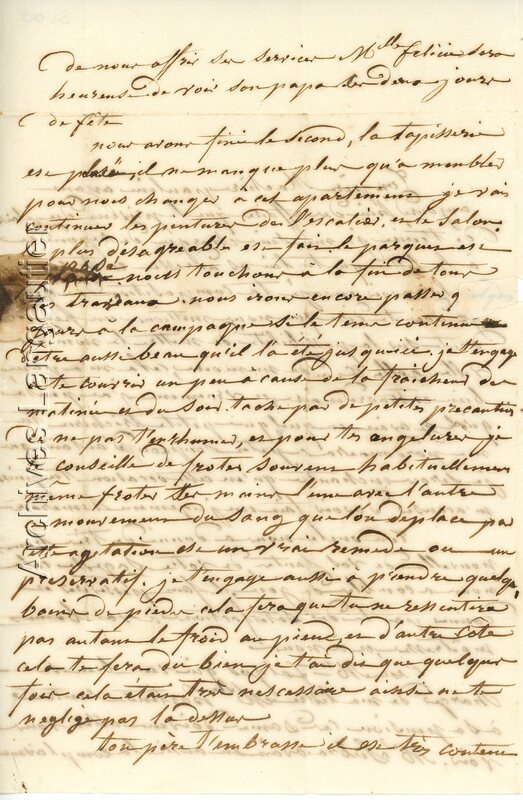 de nous offrir ses services Mlle felicie sera
heureuse de voir son papa les deux jours
de fête
nous avons fini le second, la tapisserie
est il ne manque plus qu'a meubler
pour nous changer à cet apartement je vais
continuer les peintures de l'escalier, et le salon
plus désagreable est fait. le parquet est
nous touchons à la fin de tous
travaux. nous irons encore passer q
jours à la campagne si le tems continue
d'etre aussi beau qu'il l'a été jusqu'ici. je t'engage
te couvrir un peu à cause de la fraicheur des
matinées et du soir. tache par de petites precautions
ne pas t'enrhumer, et pour tes angelures je
conseille de froter souvent habituellement
même froter tes mains l'une avec l'autre
mouvement du sang que l'on déplace par
cette agitation est un vrai remede ou un
preservatif. je t'engage aussi à prendre quelques
bains de pieds cela fera que tu ne ressentira
pas autant le froid au pieds, et d'autre côté
cela te fera du bien je t'ai dis que quelques
fois cela était très nescessaire ainsi ne te
neglige pas la dessus
ton père t'embrasse il est très content
Archives Larmastier